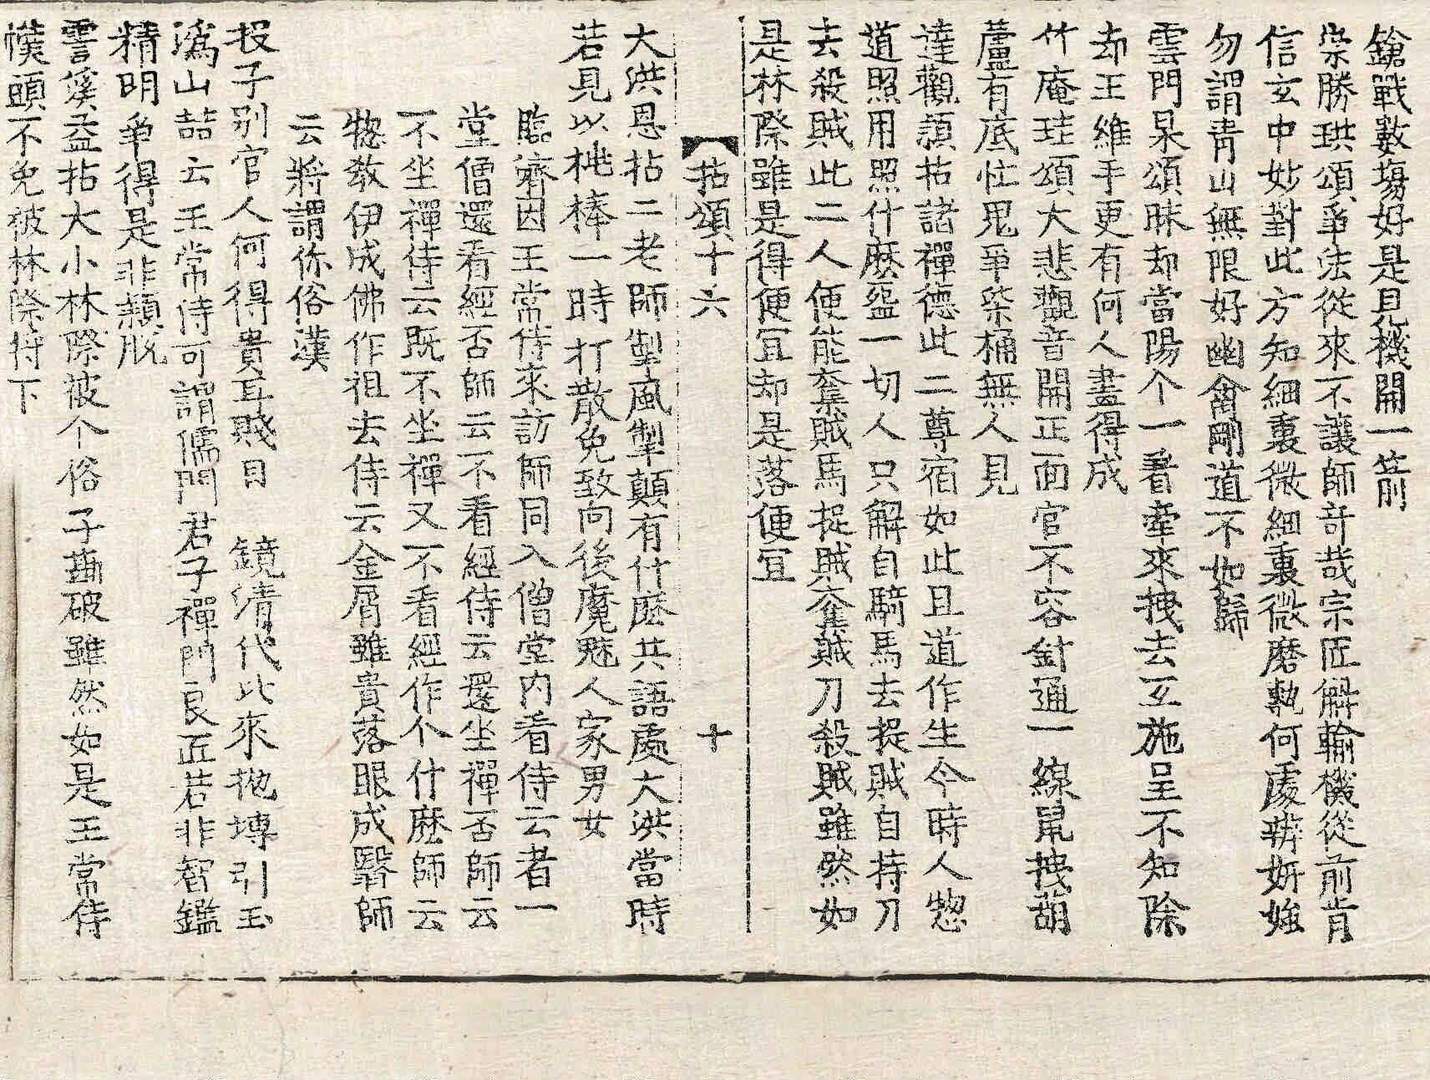 鎗戰數塲好是見機開一箭
崇勝珙頌爭法從來不讓師奇哉宗匠解輸機從前肯
信玄中妙對此方知細裏微細裏微磨勘何處辨妍媸
勿謂靑山無限好幽禽剛道不如歸
雲門杲頌昧却當陽个一着牽來拽去互施呈不知除
却王維手更有何人畫得成
竹庵珪頌大悲觀音開正面官不容針通一線鼠拽葫
蘆有底忙鬼爭柒桶無人見
達觀頴拈諸禪德此二尊宿如此且道作生今時人惣
道照用照什麽盌一切人只解自騎馬去捉賊自持刀
去殺賊此二人便能奪賊馬捉賊奪賊刀殺賊雖然如
是林際雖是得便冝却是落便冝
拈頌十六 十
大洪恩拈二老師掣風掣顚有什麽共語處大洪當時
若見以桃棒一時打散免致向後魔魅人家男女
臨濟因王常侍來訪師同入僧堂內看侍云者一
堂僧還看經否師云不看經侍云還坐禪否師云
不坐禪侍云旣不坐禪又不看經作个什麽師云
惣敎伊成佛作祖去侍云金屑雖貴落眼成翳師
云將謂你俗漢
投子別官人何得貴耳賤目 鏡淸代比來抛塼引玉
潙山喆云王常侍可謂儒門君子禪門良匠若非智鑑
精明爭得是非頴脫
霅溪益拈大小林際被个俗子勘破雖然如是王常侍
幞頭不免被林際符下